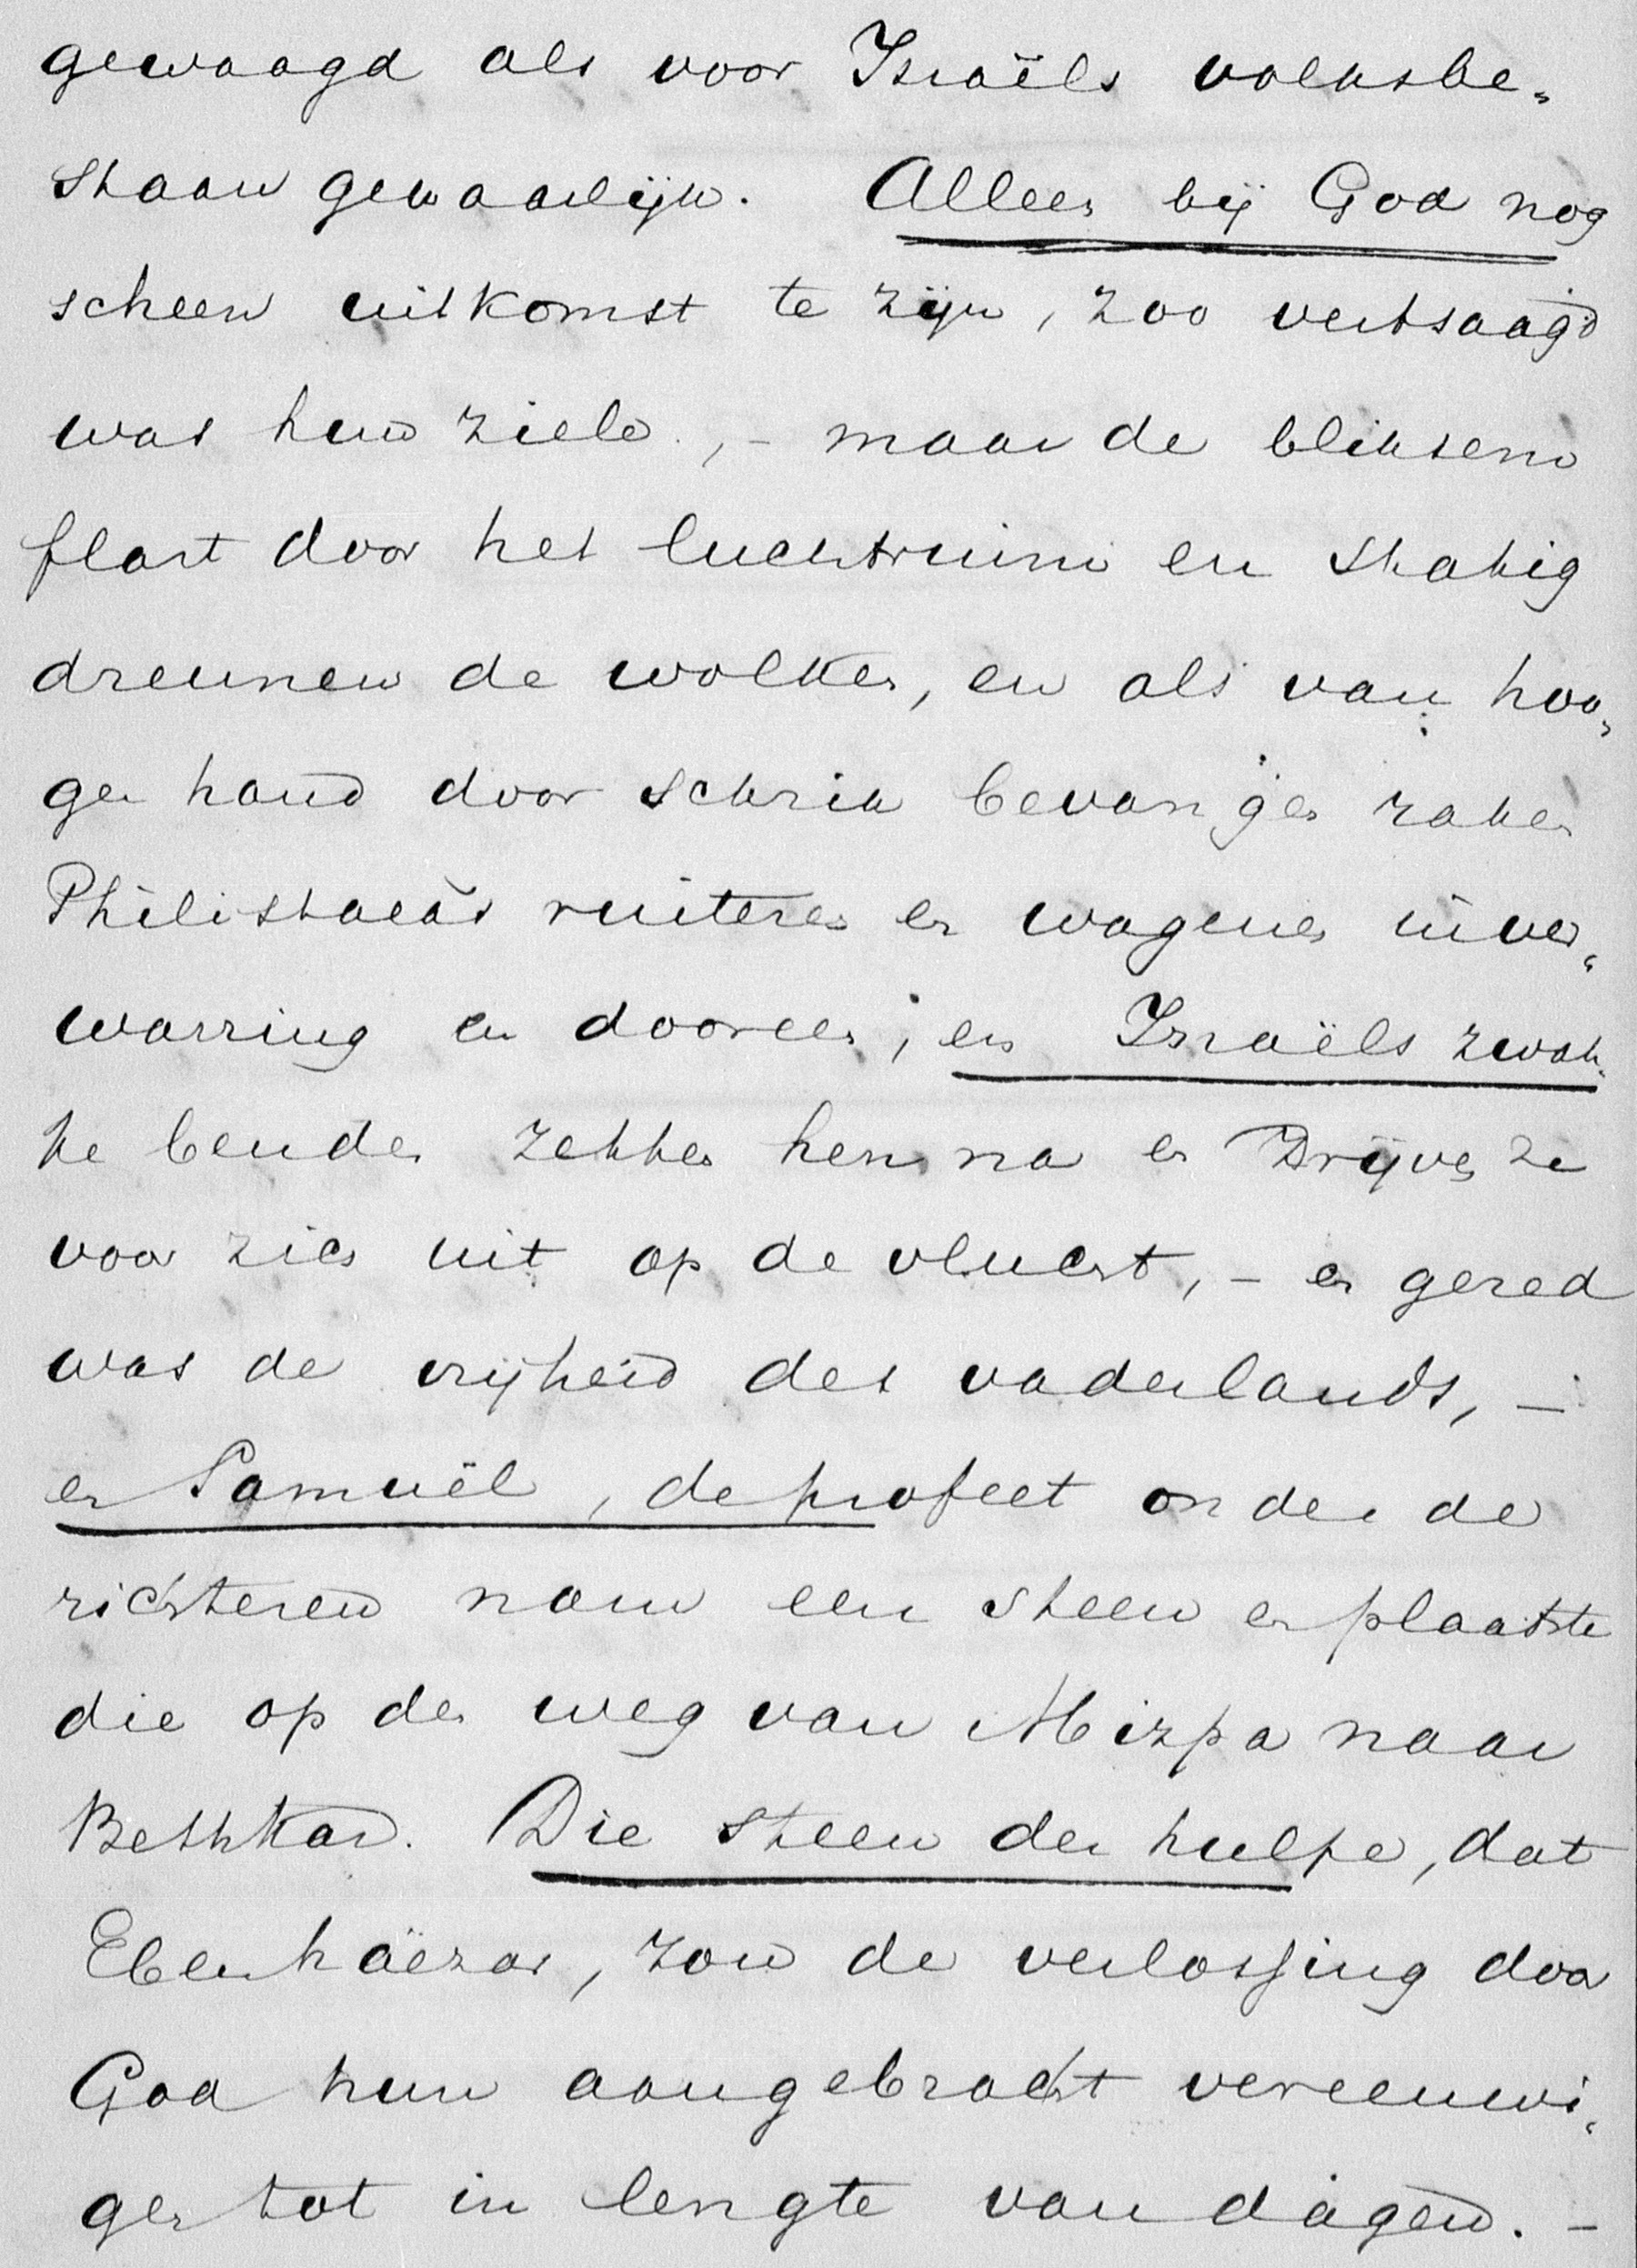 gewaagd als voor Israëls volksbe„
staan gevaarlijk. Alleen bij God nog
scheen uitkomst te zijn, zoo vertsaagd
was hun ziele, – maar de bliksem
flart door het luchtruim en statig
dreunen de wolken, en als van hoo„
ger hand door schrik bevangen raken
Philistaeas ruiteren en wagenen in ver„
warring en dooreen; en Israëls zwak„
ke benden zetten hen na en drijven ze
voor zich uit op de vlucht, – en gered
was de vrijheid des vaderlands, –
en Samuël, de profeet onder de
richteren nam een steen en plaatste
die op den weg van Mizpa naar
Bethkar. Die steen der hulpe, dat
Ebenhaëzar, zou de verlossing door
God hun aangebracht vereeuwi„
gen tot in lengte van dagen. –